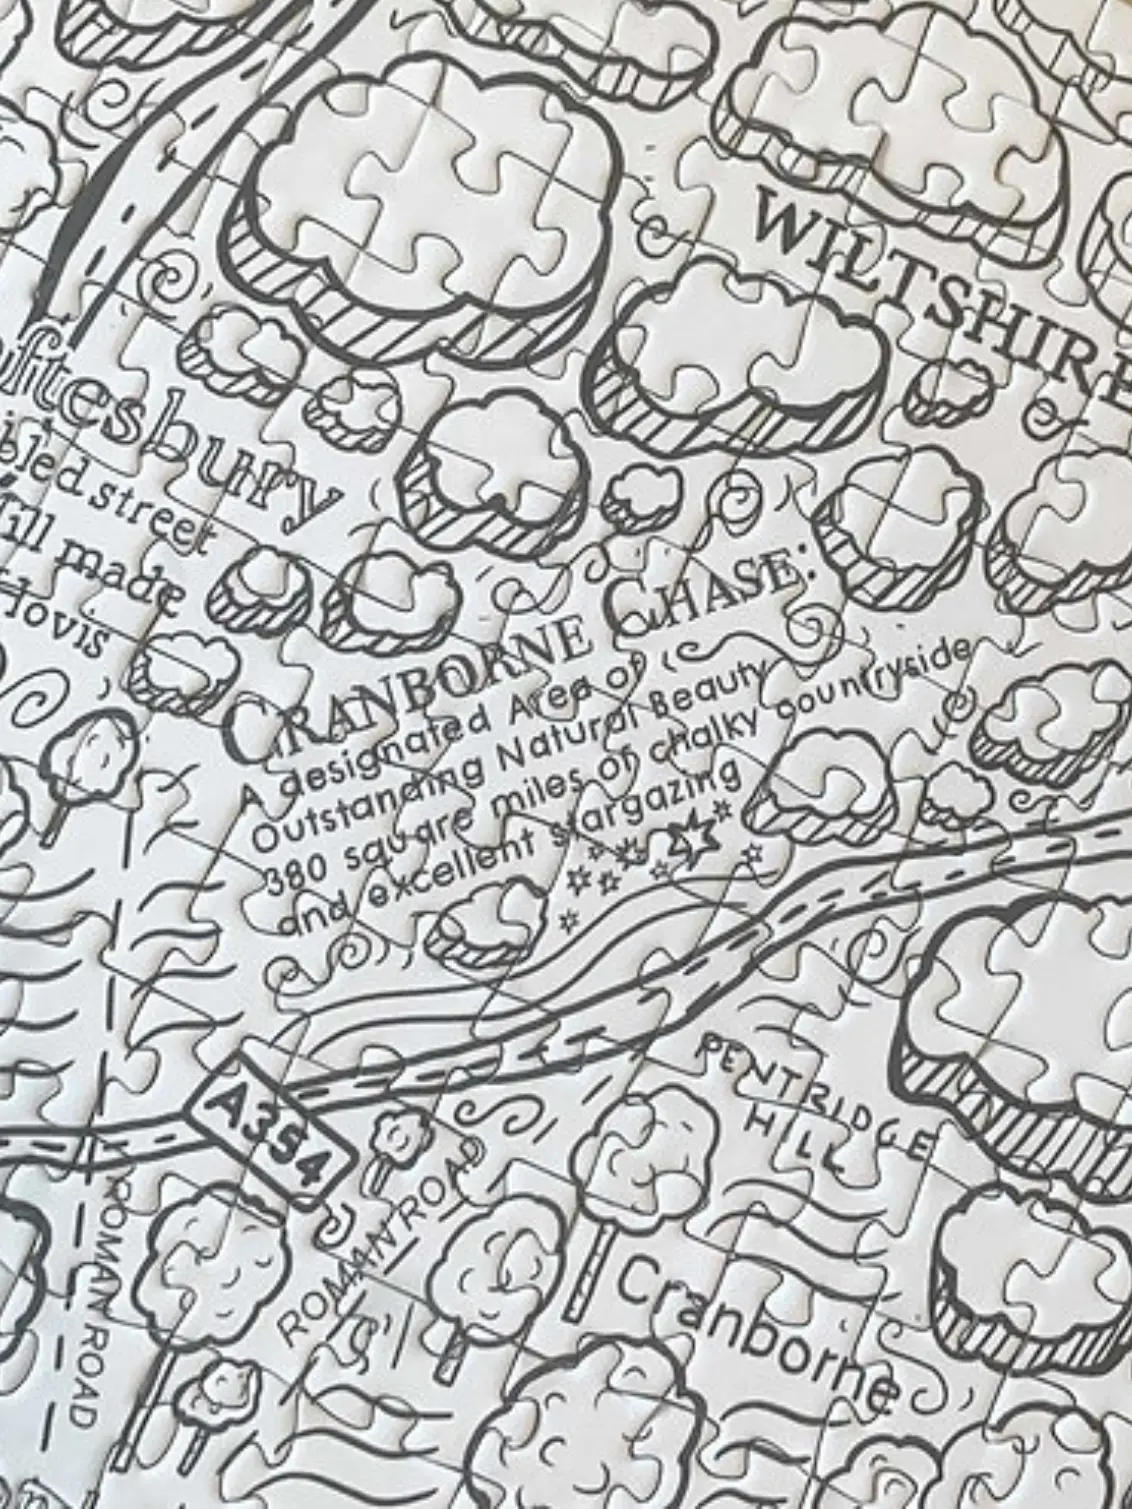 WILTSHIRE
bled street
ill made
Hovis
CRANBORNE CHASE:
A designated Area of
Outstanding Natural Beauty
380 square miles of chalky countryside
and excellent stargazing
PENTRIDGE
HILL
A354
ROMAN ROAD
ROMAN ROAD
Cranborne